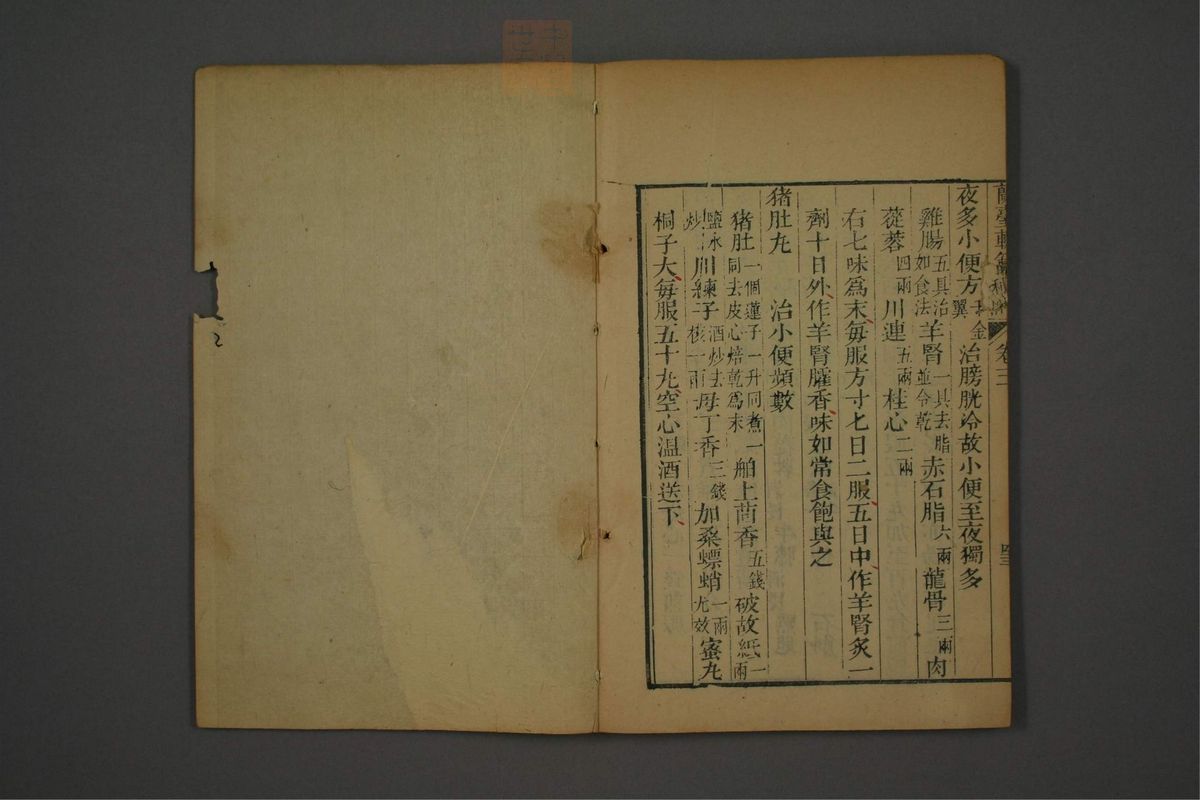 卷三 四三
夜多小便方千金翼 治膀胱冷故小便至夜獨多
雞腸五具治如食法 羊腎一具去脂並令乾 赤石脂六兩 龍骨三兩 肉
蓯蓉四兩 川連五兩 桂心二兩
右七味為末每服方寸七日二服五日中作羊腎炙一
劑十日外作羊腎臛香味如常食飽與之
猪肚丸 治小便頻數
猪肚一個蓮子一升同煮一同去皮心焙乾為末 舶上茴香五錢 破故紙一兩
鹽水炒 川練子酒炒去核一兩 母丁香三錢 加桑螵蛸一兩尤效 蜜丸
桐子大每服五十丸空心温酒送下